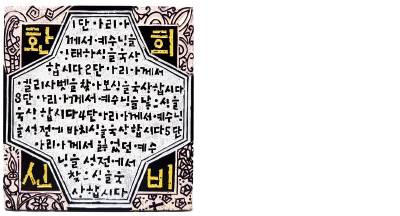 환 희
1단 마리아
께서 예수님을
잉태하심을 묵상
합시다 2단 마리아께서
엘리사벳을 찾아보심을 묵상합시다
3단 마리아께서 예수님을 낳으심을
묵상 합시다 4단 마리아께서 예수님
을 성전에 바치심을 묵상합시다 5단
마리아께서 잃었던 예수
님을 성전에서
찾으심을 묵
상합시다
신 비